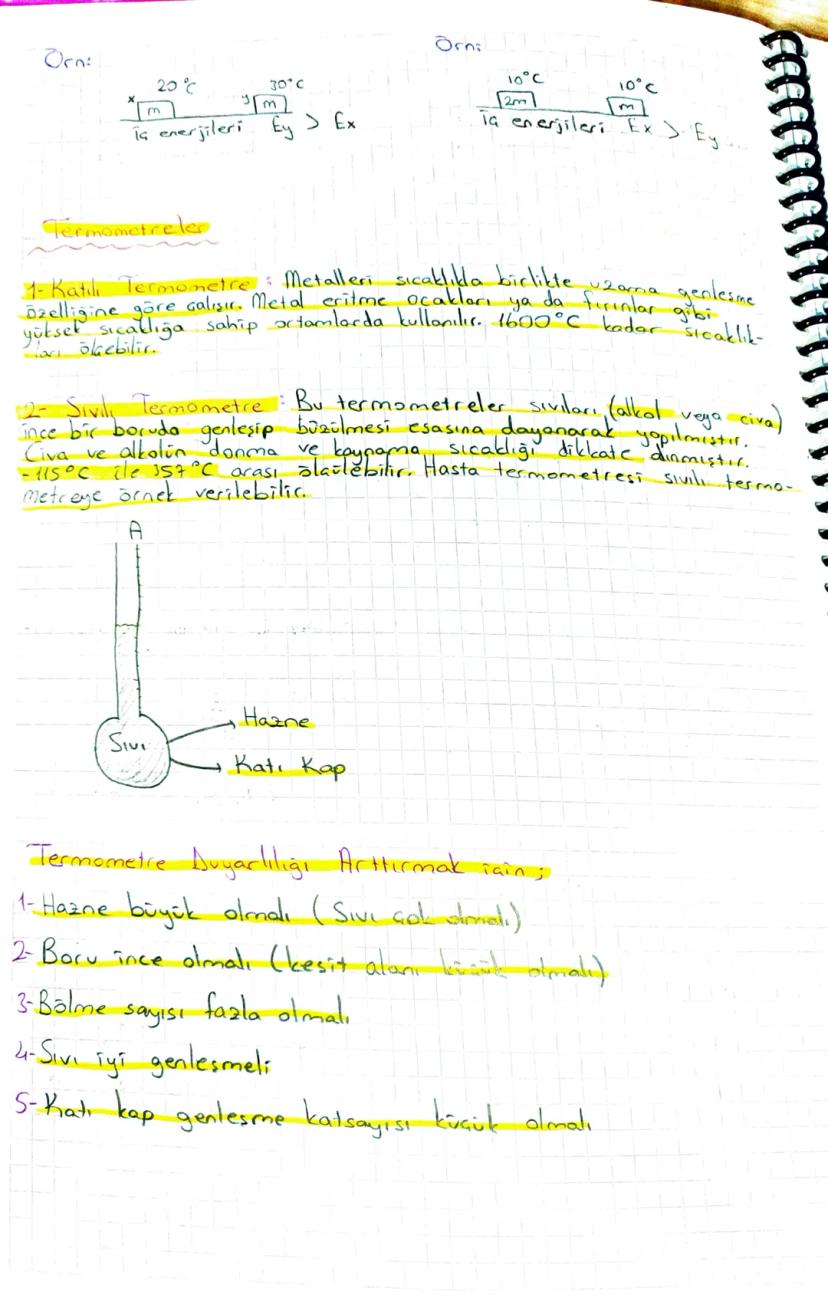 Örn:
20°C 30°C
x m y m
iç enerjileri Ey > Ex
Örn:
10°C 10°C
2m m
iç enerjileri Ex > Ey
Termometreler
1- Katılı Termometre : Metalleri sıcaklıkla birlikte uzama genleşme
özelliğine göre çalışır. Metal eritme ocakları ya da fırınlar gibi
yüksek sıcaklığa sahip ortamlarda kullanılır. 1600°C kadar sıcaklık-
ları ölçebilir.
2- Sıvılı Termometre : Bu termometreler sıvıları (alkol veya civa)
ince bir boruda genleşip büzülmesi esasına dayanarak yapılmıştır.
Civa ve alkolün donma ve kaynama sıcaklığı dikkate alınmıştır.
-115°C ile 357°C arası ölçülebilir. Hasta termometresi sıvılı termo-
metreye örnek verilebilir.
A
Sıvı
Hazne
Katı Kap
Termometre Duyarlılığı Arttırmak için ;
1- Hazne büyük olmalı ( Sıvı çok olmalı )
2- Boru ince olmalı ( kesit alanı küçük olmalı )
3- Bölme sayısı fazla olmalı
4- Sıvı iyi genleşmeli
5- Katı kap genleşme katsayısı küçük olmalı